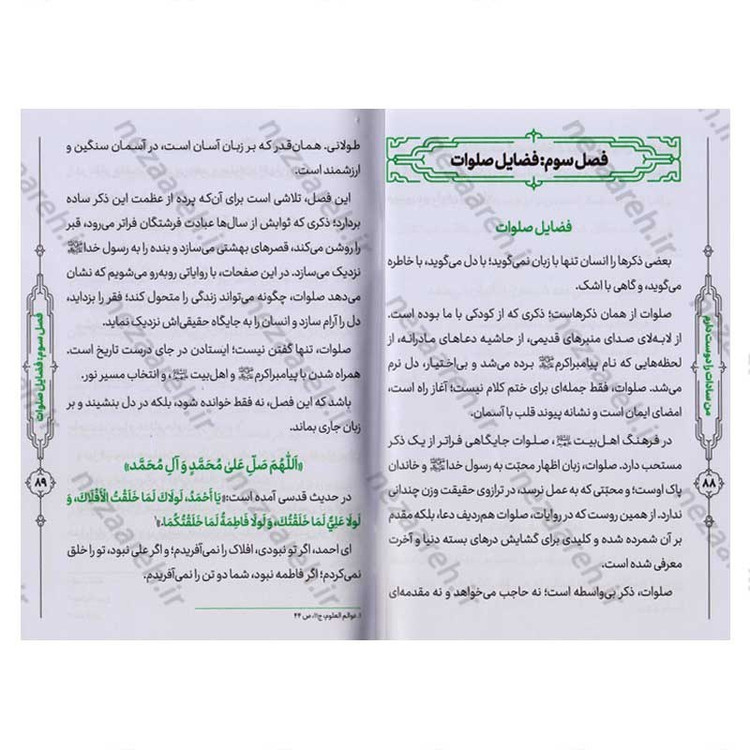 فصل سوم: فضایل صلوات
فضایل صلوات
بعضی ذکرها را انسان تنها با زبان نمی‌گوید؛ با دل می‌گوید، با خاطره
می‌گوید، و گاهی با اشک.
صلوات از همان ذکرهاست؛ ذکری که از کودکی با ما بوده است.
از لابه‌لای صدای منبرهای قدیمی، از حاشیه دعاهای مادرانه، از
لحظه‌هایی که نام پیامبراکرم ﷺ برده می‌شد و بی‌اختیار، دل نرم
می‌شد. صلوات، فقط جمله‌ای برای ختم کلام نیست؛ آغاز راه است،
امضای ایمان است و نشانه پیوند قلب با آسمان.
در فرهنگ اهل‌بیت، صلوات جایگاهی فراتر از یک ذکر
مستحب دارد. صلوات، زبان اظهار محبّت به رسول خدا ﷺ و خاندان
پاک اوست؛ و محبّتی که به عمل نرسد، در ترازوی حقیقت وزن چندانی
ندارد. از همین روست که در روایات، صلوات هم‌ردیف دعا، بلکه مقدم
بر آن شمرده شده و کلیدی برای گشایش درهای بسته دنیا و آخرت
معرفی شده است.
صلوات، ذکر بی‌واسطه است؛ نه حاجب می‌خواهد و نه مقدمه‌ای
من سادات را دوست دارم
۸۸
طولانی. همان‌قدر که بر زبان آسان است، در آسمان سنگین و
ارزشمند است.
این فصل، تلاشی است برای آن‌که پرده از عظمت این ذکر ساده
بردارد؛ ذکری که ثوابش از سال‌ها عبادت فرشتگان فراتر می‌رود، قبر
را روشن می‌کند، قصرهای بهشتی می‌سازد و بنده را به رسول خدا ﷺ
نزدیک می‌سازد. در این صفحات، با روایاتی روبه‌رو می‌شویم که نشان
می‌دهد صلوات، چگونه می‌تواند زندگی را متحول کند؛ فقر را بزداید،
دل را آرام سازد و انسان را به جایگاه حقیقی‌اش نزدیک نماید.
صلوات، تنها گفتن نیست؛ ایستادن در جای درست تاریخ است.
همراه شدن با پیامبراکرم ﷺ و اهل‌بیت، و انتخاب مسیر نور.
باشد که این فصل، نه فقط خوانده شود، بلکه در دل بنشیند و بر
زبان جاری بماند.
«اَللّهُمَّ صَلِّ عَلیٰ مُحَمَّدٍ وَ آلِ مُحَمَّد»
در حدیث قدسی آمده است: «یَا أَحْمَدُ، لَوْلَاكَ لَمَا خَلَقْتُ الْأَفْلَاكَ، وَ
لَوْلَا عَلِيٌّ لَمَا خَلَقْتُكَ، وَ لَوْلَا فَاطِمَةُ لَمَا خَلَقْتُكُمَا.»¹
ای احمد، اگر تو نبودی، افلاک را نمی‌آفریدم؛ و اگر علی نبود، تو را خلق
نمی‌کردم؛ اگر فاطمه نبود، شما دو تن را نمی‌آفریدم.
۱. عوالم العلوم، ج۱۱، ص ۴۴
فصل سوم: فضایل صلوات
۸۹
nezaareh.ir